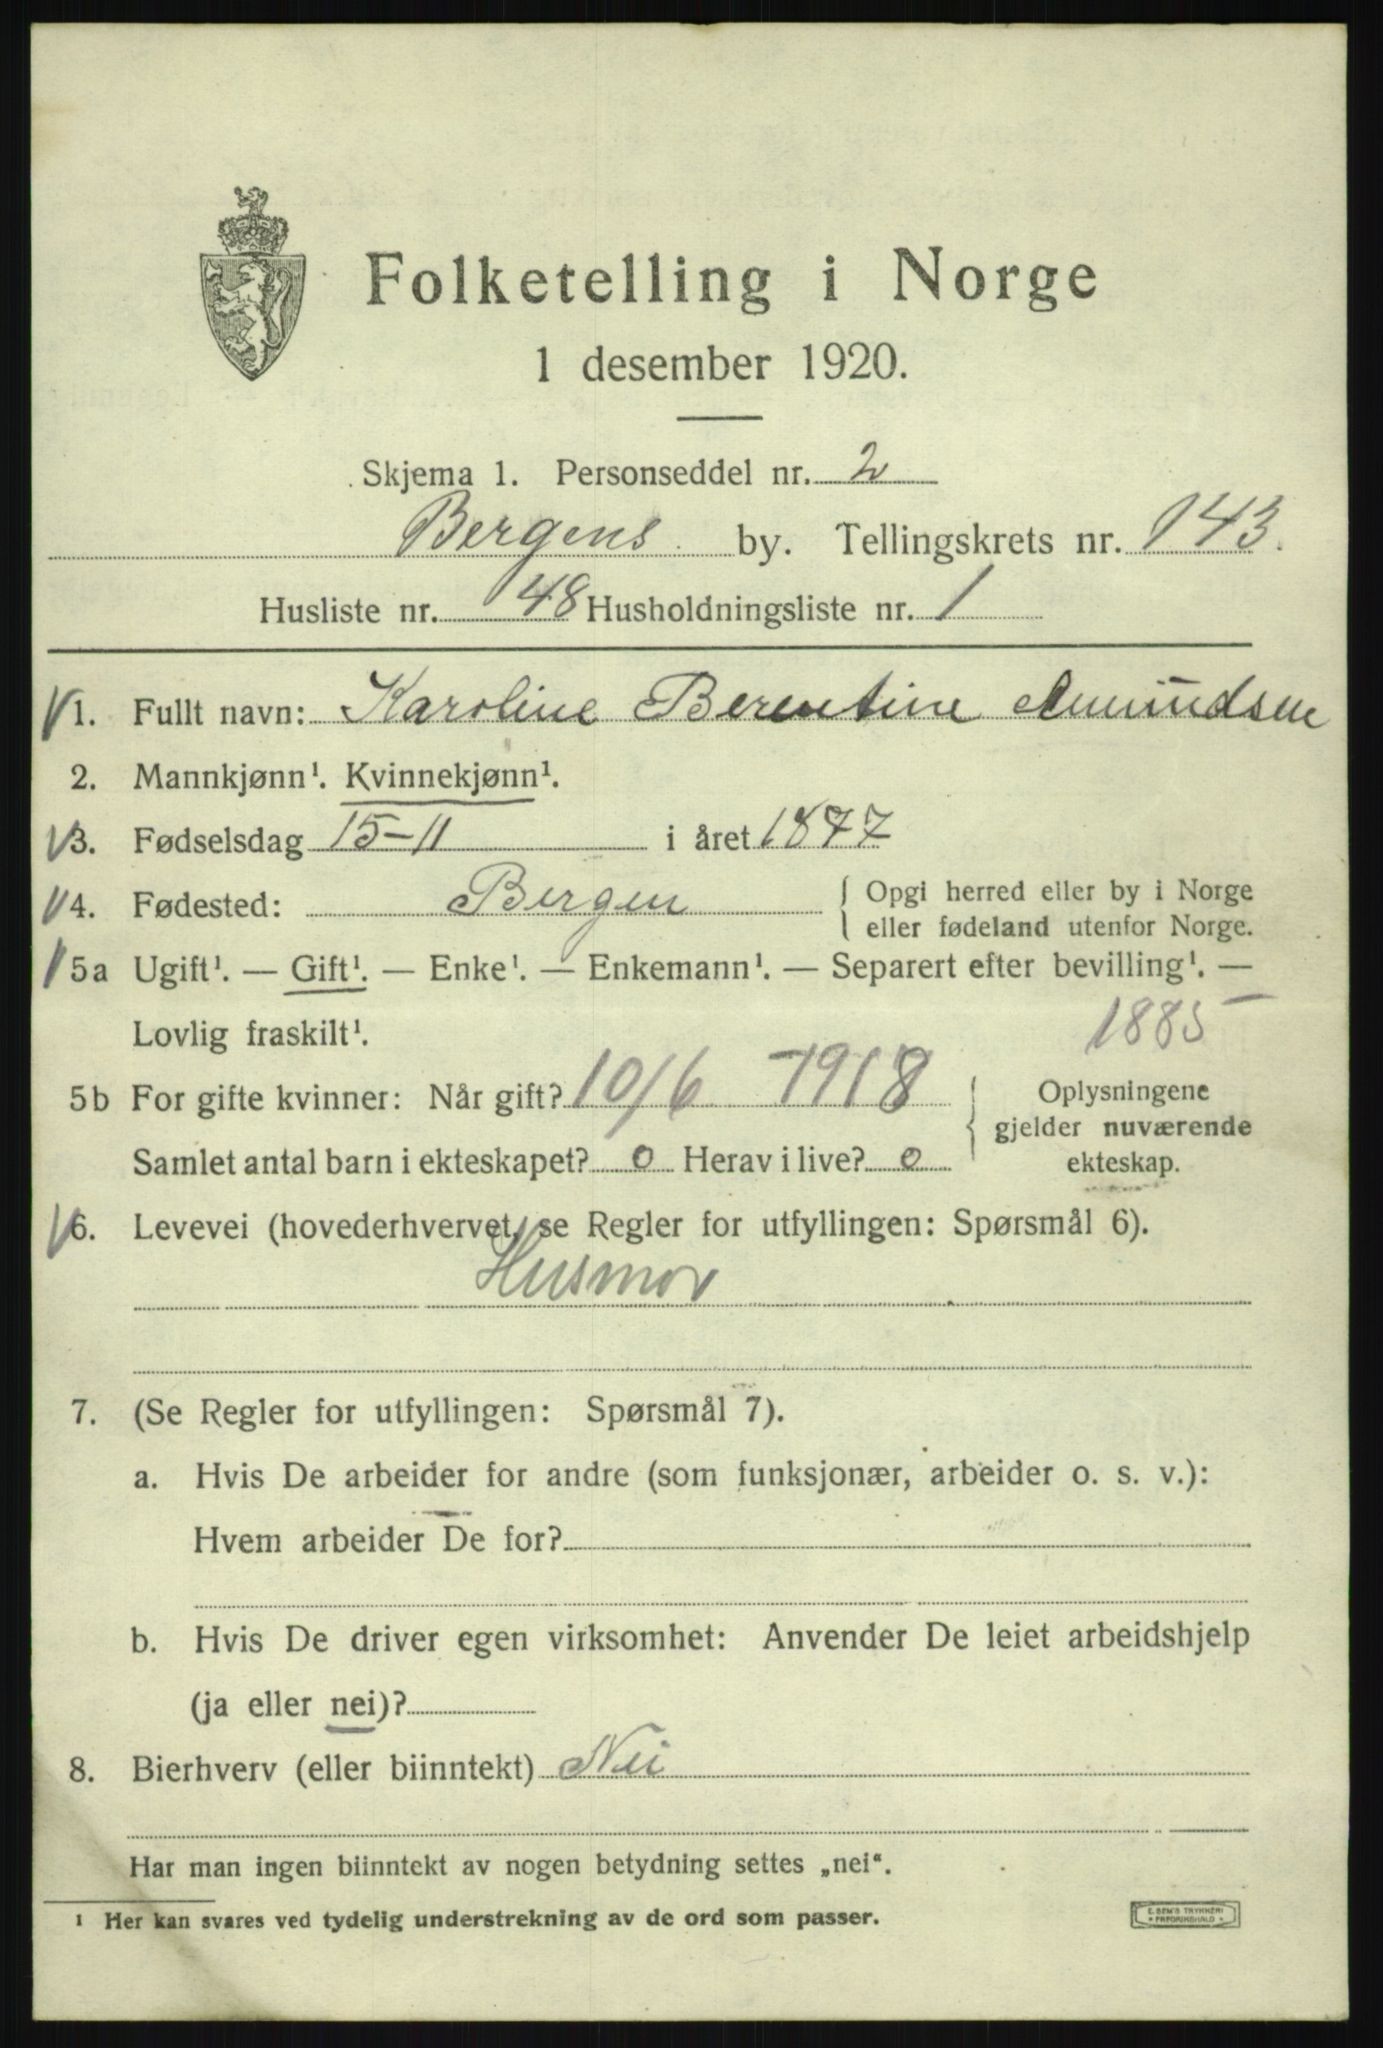 Folketelling i Norge
1 desember 1920.
Skjema 1. Personseddel nr. 2
Bergens by. Tellingskrets nr. 143.
Husliste nr. 148 Husholdningsliste nr. 1
1. Fullt navn: Karoline Berentine Amundsen
2. Mannkjønn¹. Kvinnekjønn¹.
3. Fødselsdag 15-11 i året 1877
4. Fødested: Bergen { Opgi herred eller by i Norge
eller fødeland utenfor Norge.
5a Ugift¹. — Gift¹. — Enke¹. — Enkemann¹. — Separert efter bevilling¹. —
Lovlig fraskilt¹. 1885
5b For gifte kvinner: Når gift? 10/6 1918 { Oplysningene
gjelder nuværende
Samlet antal barn i ekteskapet? 0 Herav i live? 0 ekteskap.
6. Levevei (hovederhvervet, se Regler for utfyllingen: Spørsmål 6).
Husmor
7. (Se Regler for utfyllingen: Spørsmål 7).
a. Hvis De arbeider for andre (som funksjonær, arbeider o. s. v.):
Hvem arbeider De for?
b. Hvis De driver egen virksomhet: Anvender De leiet arbeidshjelp
(ja eller nei)?
8. Bierhverv (eller biinntekt) Nei
Har man ingen biinntekt av nogen betydning settes „nei“.
¹ Her kan svares ved tydelig understrekning av de ord som passer.
E. SEM'S TRYKKERI
* FREDRIKSHALD *